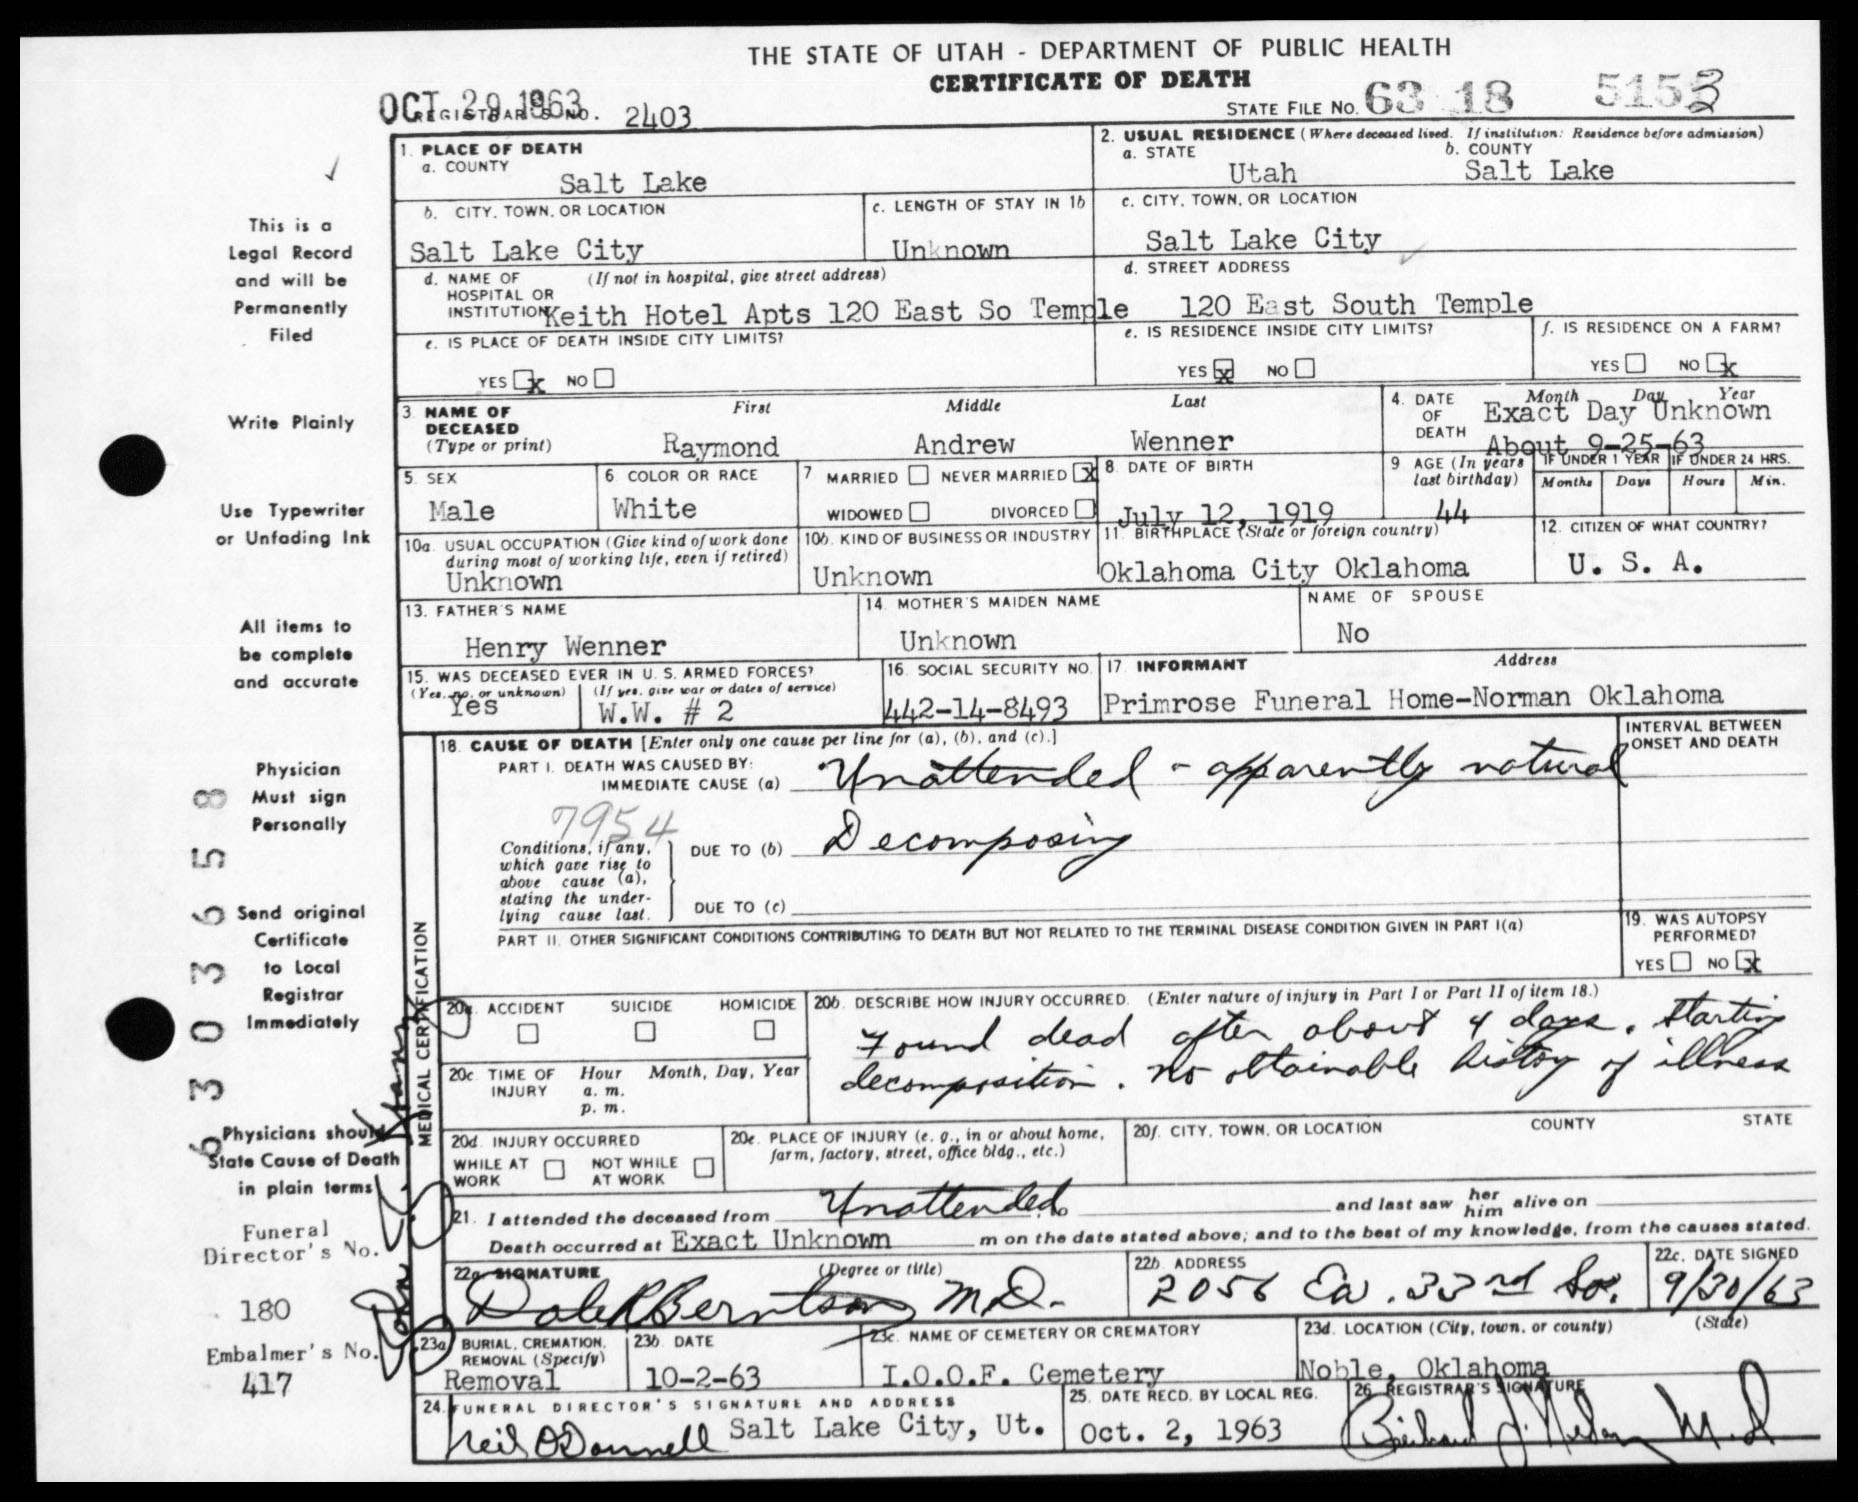 THE STATE OF UTAH - DEPARTMENT OF PUBLIC HEALTH
CERTIFICATE OF DEATH
OCT 29 1963
REGISTRAR'S NO. 2403
STATE FILE NO. 63 18 515
1. PLACE OF DEATH
a. COUNTY
Salt Lake
2. USUAL RESIDENCE (Where deceased lived. If institution: Residence before admission)
a. STATE b. COUNTY
Utah Salt Lake
b. CITY, TOWN, OR LOCATION
Salt Lake City
c. LENGTH OF STAY IN 1b
Unknown
c. CITY, TOWN, OR LOCATION
Salt Lake City
d. NAME OF HOSPITAL OR INSTITUTION (If not in hospital, give street address)
Keith Hotel Apts 120 East So Temple
d. STREET ADDRESS
120 East South Temple
e. IS PLACE OF DEATH INSIDE CITY LIMITS?
YES x NO
e. IS RESIDENCE INSIDE CITY LIMITS?
YES x NO
f. IS RESIDENCE ON A FARM?
YES NO x
3. NAME OF DECEASED (Type or print)
First Middle Last
Raymond Andrew Wenner
4. DATE OF DEATH
Month Day Year
Exact Day Unknown
About 9-25-63
5. SEX
Male
6. COLOR OR RACE
White
7 MARRIED NEVER MARRIED x
WIDOWED DIVORCED
8. DATE OF BIRTH
July 12, 1919
9 AGE (In years last birthday)
44
IF UNDER 1 YEAR IF UNDER 24 HRS.
Months Days Hours Min.
10a. USUAL OCCUPATION (Give kind of work done during most of working life, even if retired)
Unknown
10b. KIND OF BUSINESS OR INDUSTRY
Unknown
11. BIRTHPLACE (State or foreign country)
Oklahoma City Oklahoma
12. CITIZEN OF WHAT COUNTRY?
U. S. A.
13. FATHER'S NAME
Henry Wenner
14. MOTHER'S MAIDEN NAME
Unknown
NAME OF SPOUSE
No
15. WAS DECEASED EVER IN U. S. ARMED FORCES?
(Yes, no, or unknown) (If yes, give war or dates of service)
Yes W.W. # 2
16. SOCIAL SECURITY NO.
442-14-8493
17 INFORMANT Address
Primrose Funeral Home-Norman Oklahoma
MEDICAL CERTIFICATION
18. CAUSE OF DEATH [Enter only one cause per line for (a), (b), and (c).]
INTERVAL BETWEEN ONSET AND DEATH
PART I. DEATH WAS CAUSED BY:
IMMEDIATE CAUSE (a) Unattended - apparently natural
7954
Conditions, if any, which gave rise to above cause (a), stating the underlying cause last.
DUE TO (b) Decomposing
DUE TO (c)
PART II. OTHER SIGNIFICANT CONDITIONS CONTRIBUTING TO DEATH BUT NOT RELATED TO THE TERMINAL DISEASE CONDITION GIVEN IN PART I(a)
19. WAS AUTOPSY PERFORMED?
YES NO x
20a. ACCIDENT SUICIDE HOMICIDE
20b. DESCRIBE HOW INJURY OCCURRED. (Enter nature of injury in Part I or Part II of item 18.)
Found dead after about 4 days. Starting
decomposition. No obtainable history of illness
20c. TIME OF INJURY Hour Month, Day, Year
a. m.
p. m.
20d. INJURY OCCURRED
WHILE AT WORK NOT WHILE AT WORK
20e. PLACE OF INJURY (e. g., in or about home, farm, factory, street, office bldg., etc.)
20f. CITY, TOWN, OR LOCATION COUNTY STATE
21. I attended the deceased from Unattended. and last saw her him alive on
Death occurred at Exact Unknown m on the date stated above; and to the best of my knowledge, from the causes stated.
22a SIGNATURE (Degree or title)
Dale R Berntson M.D.
22b. ADDRESS
2056 Ea. 33rd So.
22c. DATE SIGNED
9/30/63
23a BURIAL, CREMATION, REMOVAL (Specify)
Removal
23b. DATE
10-2-63
23c. NAME OF CEMETERY OR CREMATORY
I.O.O.F. Cemetery
23d. LOCATION (City, town, or county) (State)
Noble, Oklahoma
24. FUNERAL DIRECTOR'S SIGNATURE AND ADDRESS
Neil O'Donnell Salt Lake City, Ut.
25. DATE RECD. BY LOCAL REG.
Oct. 2, 1963
26 REGISTRAR'S SIGNATURE
M.D
This is a
Legal Record
and will be
Permanently
Filed
Write Plainly
Use Typewriter
or Unfading Ink
All items to
be complete
and accurate
Physician
Must sign
Personally
Send original
Certificate
to Local
Registrar
Immediately
Physicians should
State Cause of Death
in plain terms
Funeral
Director's No.
180
Embalmer's No.
417
63036558